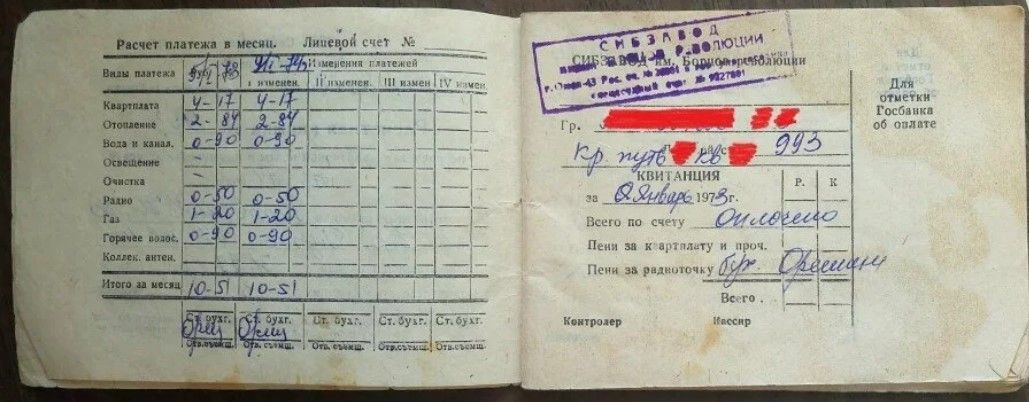 Расчет платежа в месяц. Лицевой счет №
Виды платежа
Изменения платежей
I изменен. II изменен. III измен. IV измен.
Квартплата 4-17 4-17
Отопление 2-84 2-84
Вода и канал. 0-90 0-90
Освещение — —
Очистка — —
Радио 0-50 0-50
Газ 1-20 1-20
Горячее водос. 0-90 0-90
Коллек. антен.
Итого за месяц 10-51 10-51
Ст. бухг. Ст. бухг. Ст. бухг. Ст. бухг. Ст. бухг.
Отв.съемщ. Отв.съемщ. Отв.съемщ. Отв.съемщ. Отв.съемщ.
СИБЗАВОД
РЕВОЛЮЦИИ
СИБЗАВОД им. Борцов революции
Гр.
Кр. путь кв 993
КВИТАНЦИЯ Р. К
за Январь 1973г.
Всего по счету Оплочено
Пени за квартплату и проч.
Пени за радиоточку бух.
Всего.
Контролер Кассир
Для
отметки
Госбанка
об оплате